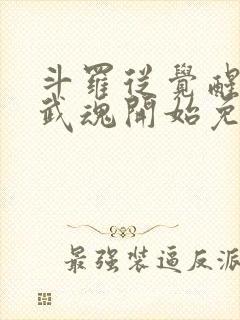 斗羅從覺醒
武魂開始免
最強裝逼反派